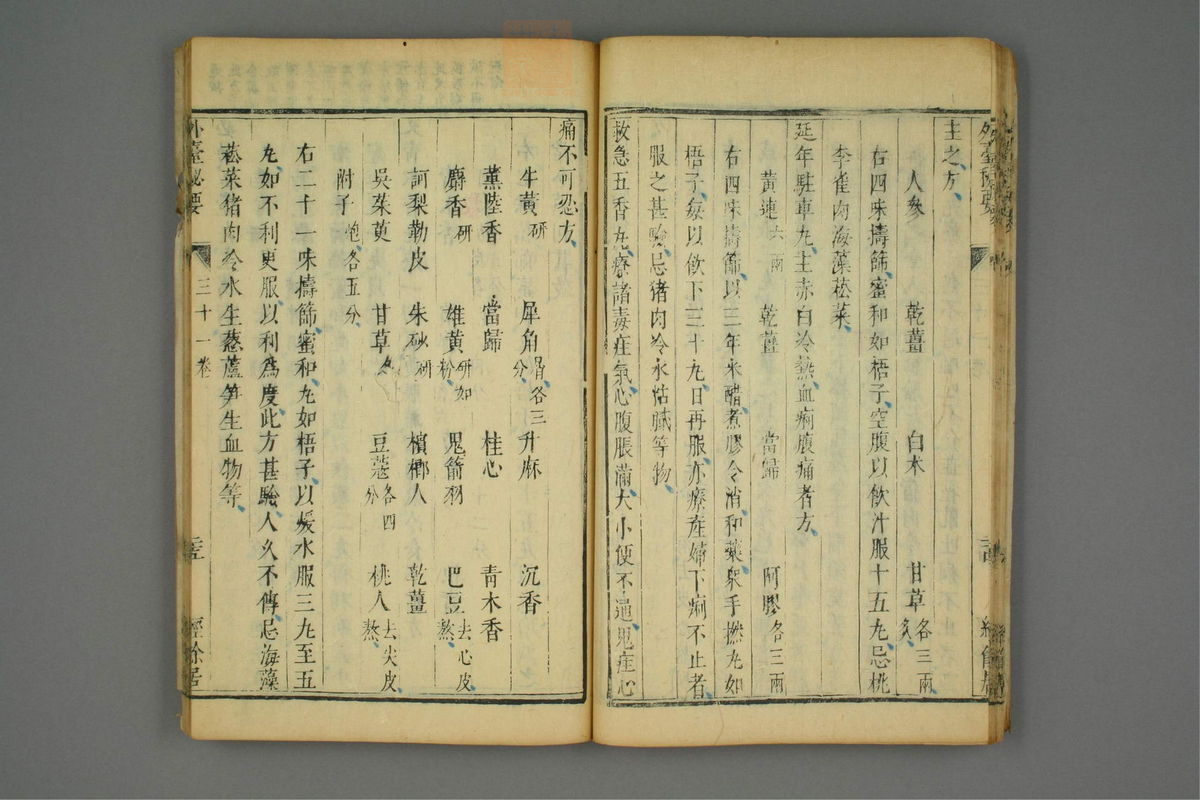 主之方
人參 乾薑 白朮 甘草各三兩炙
右四味擣篩蜜和如梧子空腹以飲汁服十五丸忌桃
李雀肉海藻菘菜
延年駐車丸主赤白冷熱血痢腹痛者方
黃連六兩 乾薑 當歸 阿膠各三兩
右四味擣篩以三年米醋煮膠令消和藥衆手撚丸如
梧子每以飲下三十丸日再服亦療產婦下痢不止者
服之甚驗忌猪肉冷水粘膩等物
救急五香丸療諸毒疰氣心腹脹滿大小便不通鬼疰心
痛不可忍方
牛黃研 犀角屑各三分 升麻 沉香
薰陸香 當歸 桂心 青木香
麝香研 雄黃研如粉 鬼箭羽 巴豆去心皮熬
訶梨勒皮 朱砂研 檳榔人 乾薑
吳茱萸 甘草炙 豆蔻各四分 桃人去尖皮熬
附子炮各五分
右二十一味擣篩蜜和丸如梧子以煖水服三丸至五
丸如不利更服以利為度此方甚驗人久不傳忌海藻
菘菜猪肉冷水生葱蘆笋生血物等
外臺秘要 三十一卷 二五 經餘居